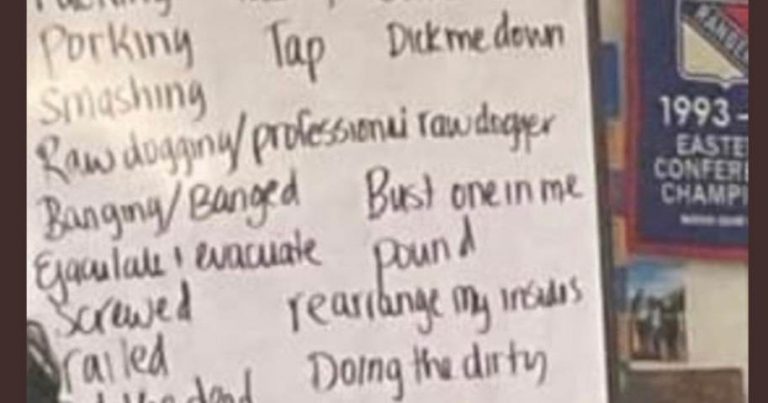 Porking Tap Dick me down
Smashing
Rawdogging/professional rawdogger
Banging/Banged Bust one in me
Ejaculate & evacuate pound
Screwed rearrange my insides
railed Doing the dirty
RANGE
1993-
EASTE
CONFER
CHAMPI